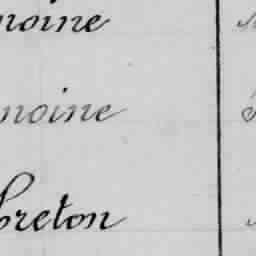 moine
moine
breton